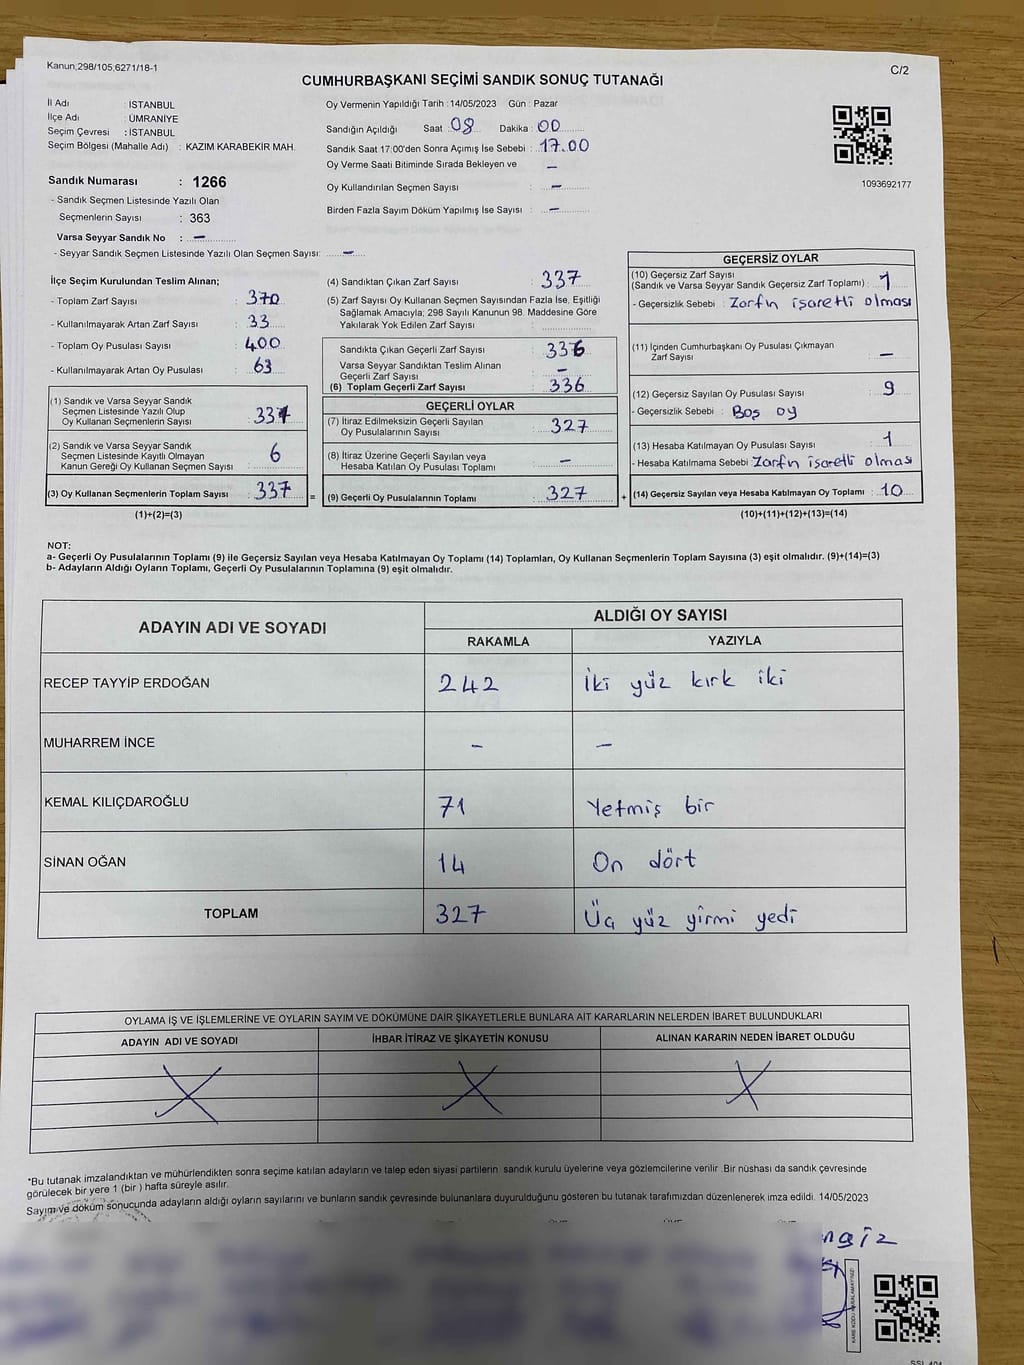 Kanun,298/105,6271/18-1
C/2
CUMHURBAŞKANI SEÇİMİ SANDIK SONUÇ TUTANAĞI
İl Adı : İSTANBUL
İlçe Adı : ÜMRANİYE
Seçim Çevresi : İSTANBUL
Seçim Bölgesi (Mahalle Adı) : KAZIM KARABEKİR MAH.
Sandık Numarası : 1266
- Sandık Seçmen Listesinde Yazılı Olan
Seçmenlerin Sayısı : 363
Varsa Seyyar Sandık No : –
- Seyyar Sandık Seçmen Listesinde Yazılı Olan Seçmen Sayısı: –
Oy Vermenin Yapıldığı Tarih : 14/05/2023 Gün : Pazar
Sandığın Açıldığı Saat : 08 Dakika : 00
Sandık Saat 17:00'den Sonra Açımış İse Sebebi : 17.00
Oy Verme Saati Bitiminde Sırada Bekleyen ve –
Oy Kullandırılan Seçmen Sayısı : –
Birden Fazla Sayım Döküm Yapılmış İse Sayısı : –
1093692177
İlçe Seçim Kurulundan Teslim Alınan;
- Toplam Zarf Sayısı : 370
- Kullanılmayarak Artan Zarf Sayısı : 33
- Toplam Oy Pusulası Sayısı : 400
- Kullanılmayarak Artan Oy Pusulası : 63
(1) Sandık ve Varsa Seyyar Sandık
Seçmen Listesinde Yazılı Olup
Oy Kullanan Seçmenlerin Sayısı : 331
(2) Sandık ve Varsa Seyyar Sandık
Seçmen Listesinde Kayıtlı Olmayan
Kanun Gereği Oy Kullanan Seçmen Sayısı : 6
(3) Oy Kullanan Seçmenlerin Toplam Sayısı : 337
(1)+(2)=(3)
(4) Sandıktan Çıkan Zarf Sayısı : 337
(5) Zarf Sayısı Oy Kullanan Seçmen Sayısından Fazla İse, Eşitliği
Sağlamak Amacıyla; 298 Sayılı Kanunun 98. Maddesine Göre
Yakılarak Yok Edilen Zarf Sayısı :
Sandıkta Çıkan Geçerli Zarf Sayısı : 336
Varsa Seyyar Sandıktan Teslim Alınan
Geçerli Zarf Sayısı : –
(6) Toplam Geçerli Zarf Sayısı : 336
GEÇERLİ OYLAR
(7) İtiraz Edilmeksizin Geçerli Sayılan
Oy Pusulalarının Sayısı : 327
(8) İtiraz Üzerine Geçerli Sayılan veya
Hesaba Katılan Oy Pusulası Toplamı : –
= (9) Geçerli Oy Pusulalarının Toplamı : 327
GEÇERSİZ OYLAR
(10) Geçersiz Zarf Sayısı
(Sandık ve Varsa Seyyar Sandık Geçersiz Zarf Toplamı) : 1
- Geçersizlik Sebebi : Zarfın işaretli olması
(11) İçinden Cumhurbaşkanı Oy Pusulası Çıkmayan
Zarf Sayısı : –
(12) Geçersiz Sayılan Oy Pusulası Sayısı : 9
- Geçersizlik Sebebi : Boş oy
(13) Hesaba Katılmayan Oy Pusulası Sayısı : 1
- Hesaba Katılmama Sebebi : Zarfın işaretli olması
+ (14) Geçersiz Sayılan veya Hesaba Katılmayan Oy Toplamı : 10
(10)+(11)+(12)+(13)=(14)
NOT:
a- Geçerli Oy Pusulalarının Toplamı (9) ile Geçersiz Sayılan veya Hesaba Katılmayan Oy Toplamı (14) Toplamları, Oy Kullanan Seçmenlerin Toplam Sayısına (3) eşit olmalıdır. (9)+(14)=(3)
b- Adayların Aldığı Oyların Toplamı, Geçerli Oy Pusulalarının Toplamına (9) eşit olmalıdır.
ADAYIN ADI VE SOYADI
ALDIĞI OY SAYISI
RAKAMLA YAZIYLA
RECEP TAYYİP ERDOĞAN 242 İki yüz kırk iki
MUHARREM İNCE – –
KEMAL KILIÇDAROĞLU 71 Yetmiş bir
SİNAN OĞAN 14 On dört
TOPLAM 327 Üç yüz yirmi yedi
OYLAMA İŞ VE İŞLEMLERİNE VE OYLARIN SAYIM VE DÖKÜMÜNE DAİR ŞİKAYETLERLE BUNLARA AİT KARARLARIN NELERDEN İBARET BULUNDUKLARI
ADAYIN ADI VE SOYADI İHBAR İTİRAZ VE ŞİKAYETİN KONUSU ALINAN KARARIN NEDEN İBARET OLDUĞU
*Bu tutanak imzalandıktan ve mühürlendikten sonra seçime katılan adayların ve talep eden siyasi partilerin sandık kurulu üyelerine veya gözlemcilerine verilir .Bir nüshası da sandık çevresinde
görülecek bir yere 1 (bir ) hafta süreyle asılır.
Sayım ve döküm sonucunda adayların aldığı oyların sayılarını ve bunların sandık çevresinde bulunanlara duyurulduğunu gösteren bu tutanak tarafımızdan düzenlenerek imza edildi. 14/05/2023